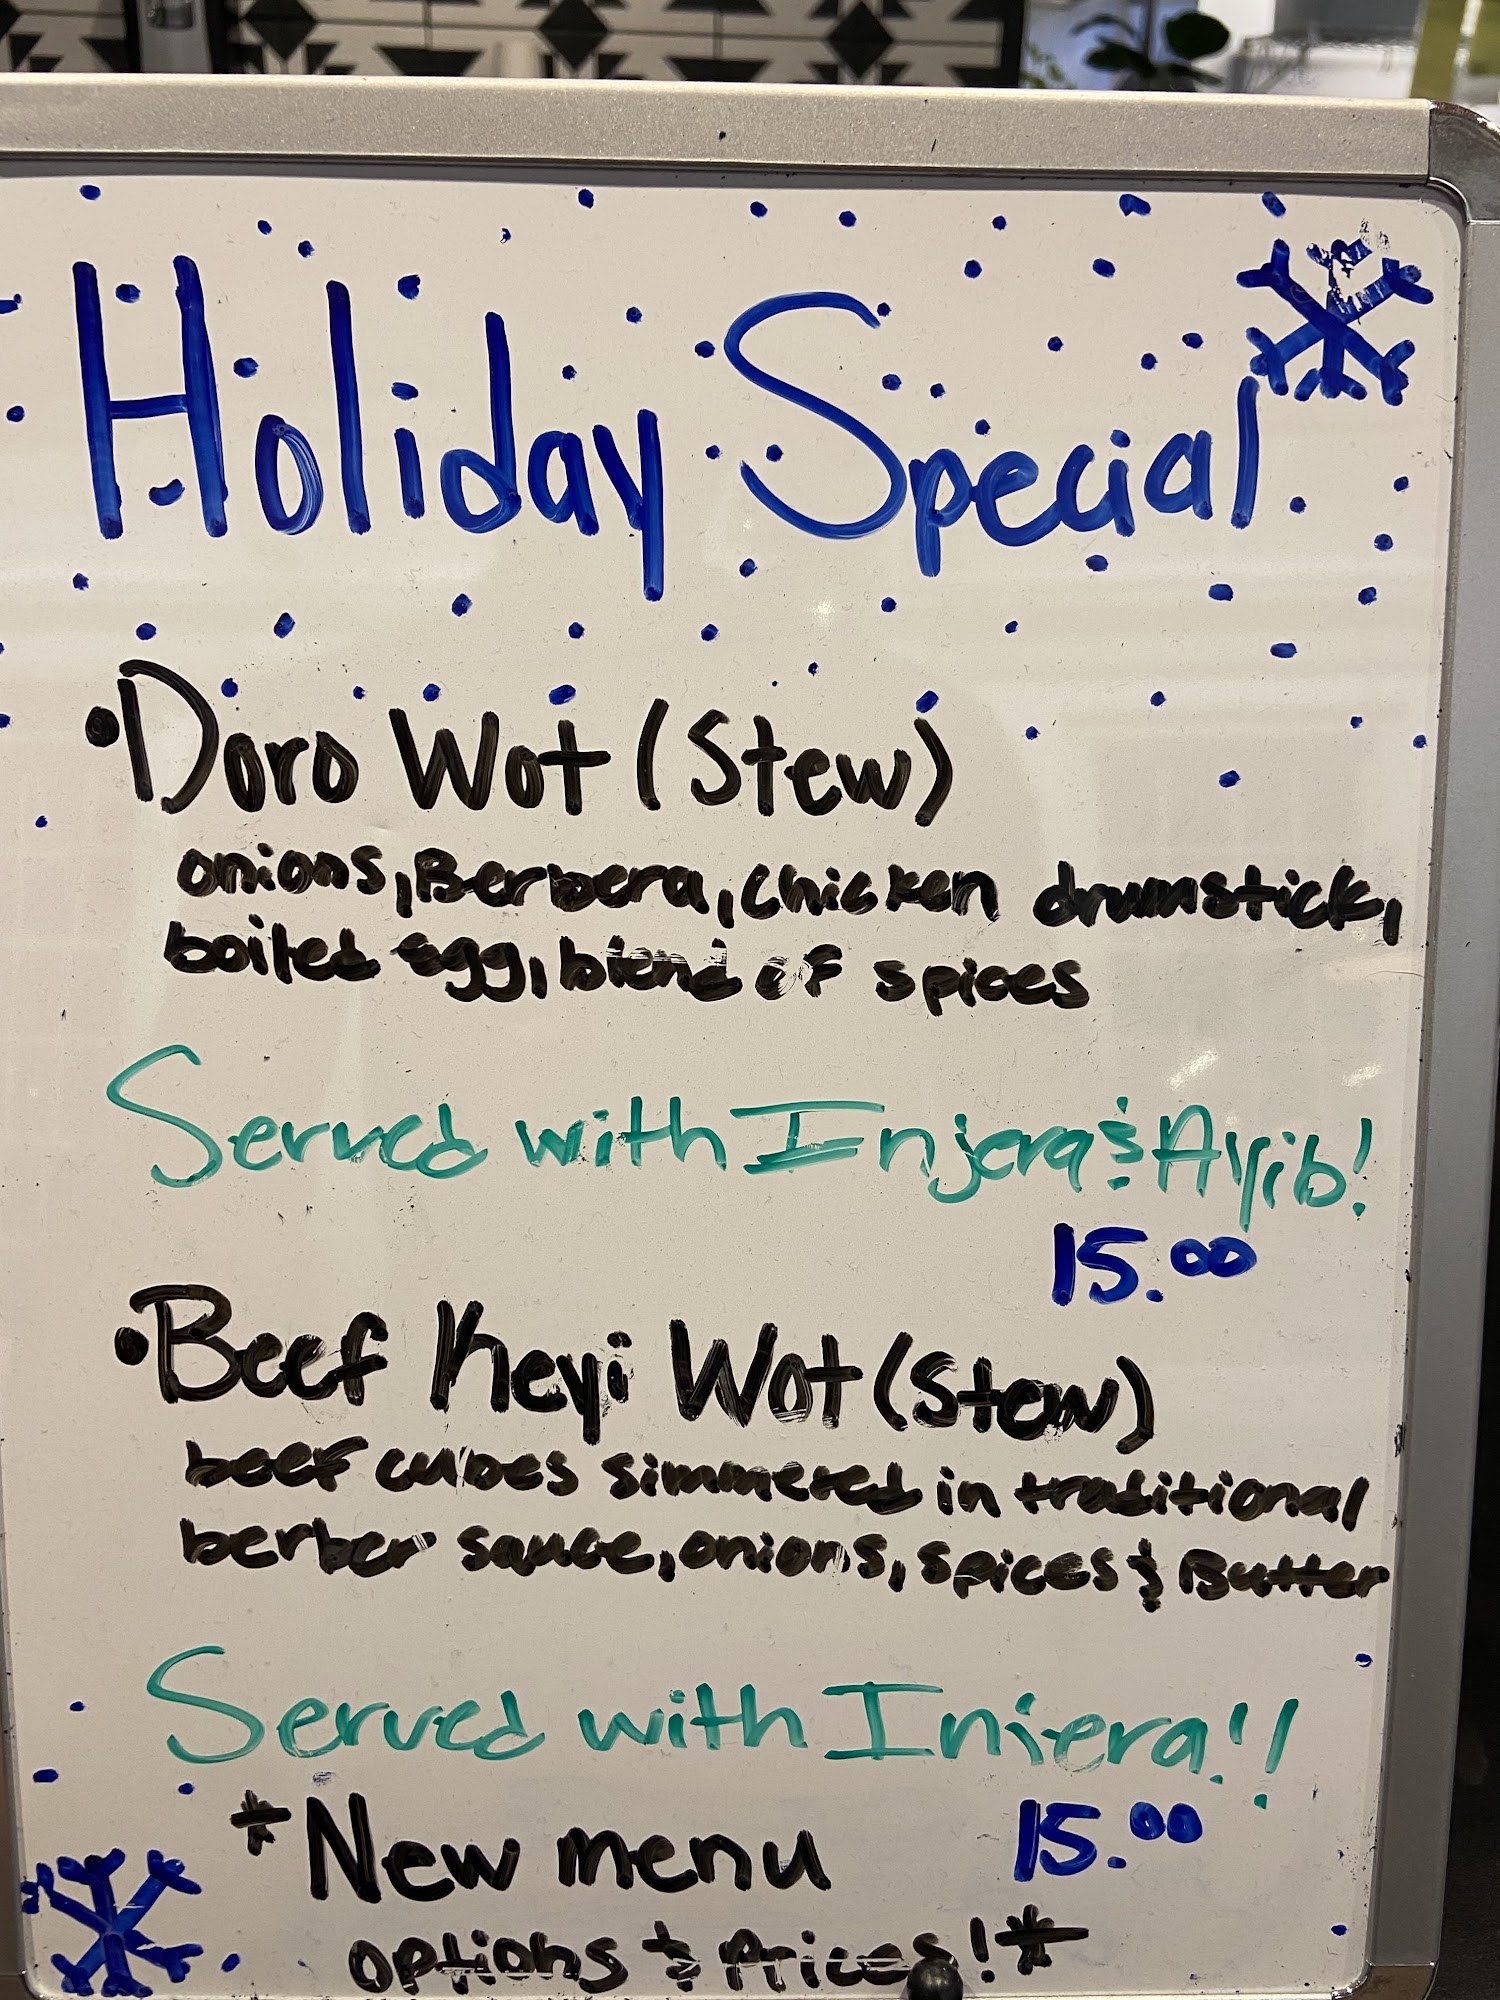 Holiday Special
• Doro Wot (Stew)
onions, Berbera, chicken drumstick,
boiled egg, blend of spices
Served with Injera & Ayib!
15.00
• Beef Keyi Wot (Stew)
beef cubes simmered in traditional
berber sauce, onions, spices & Butter
Served with Injera!!
15.00
*New menu
options & Prices!*